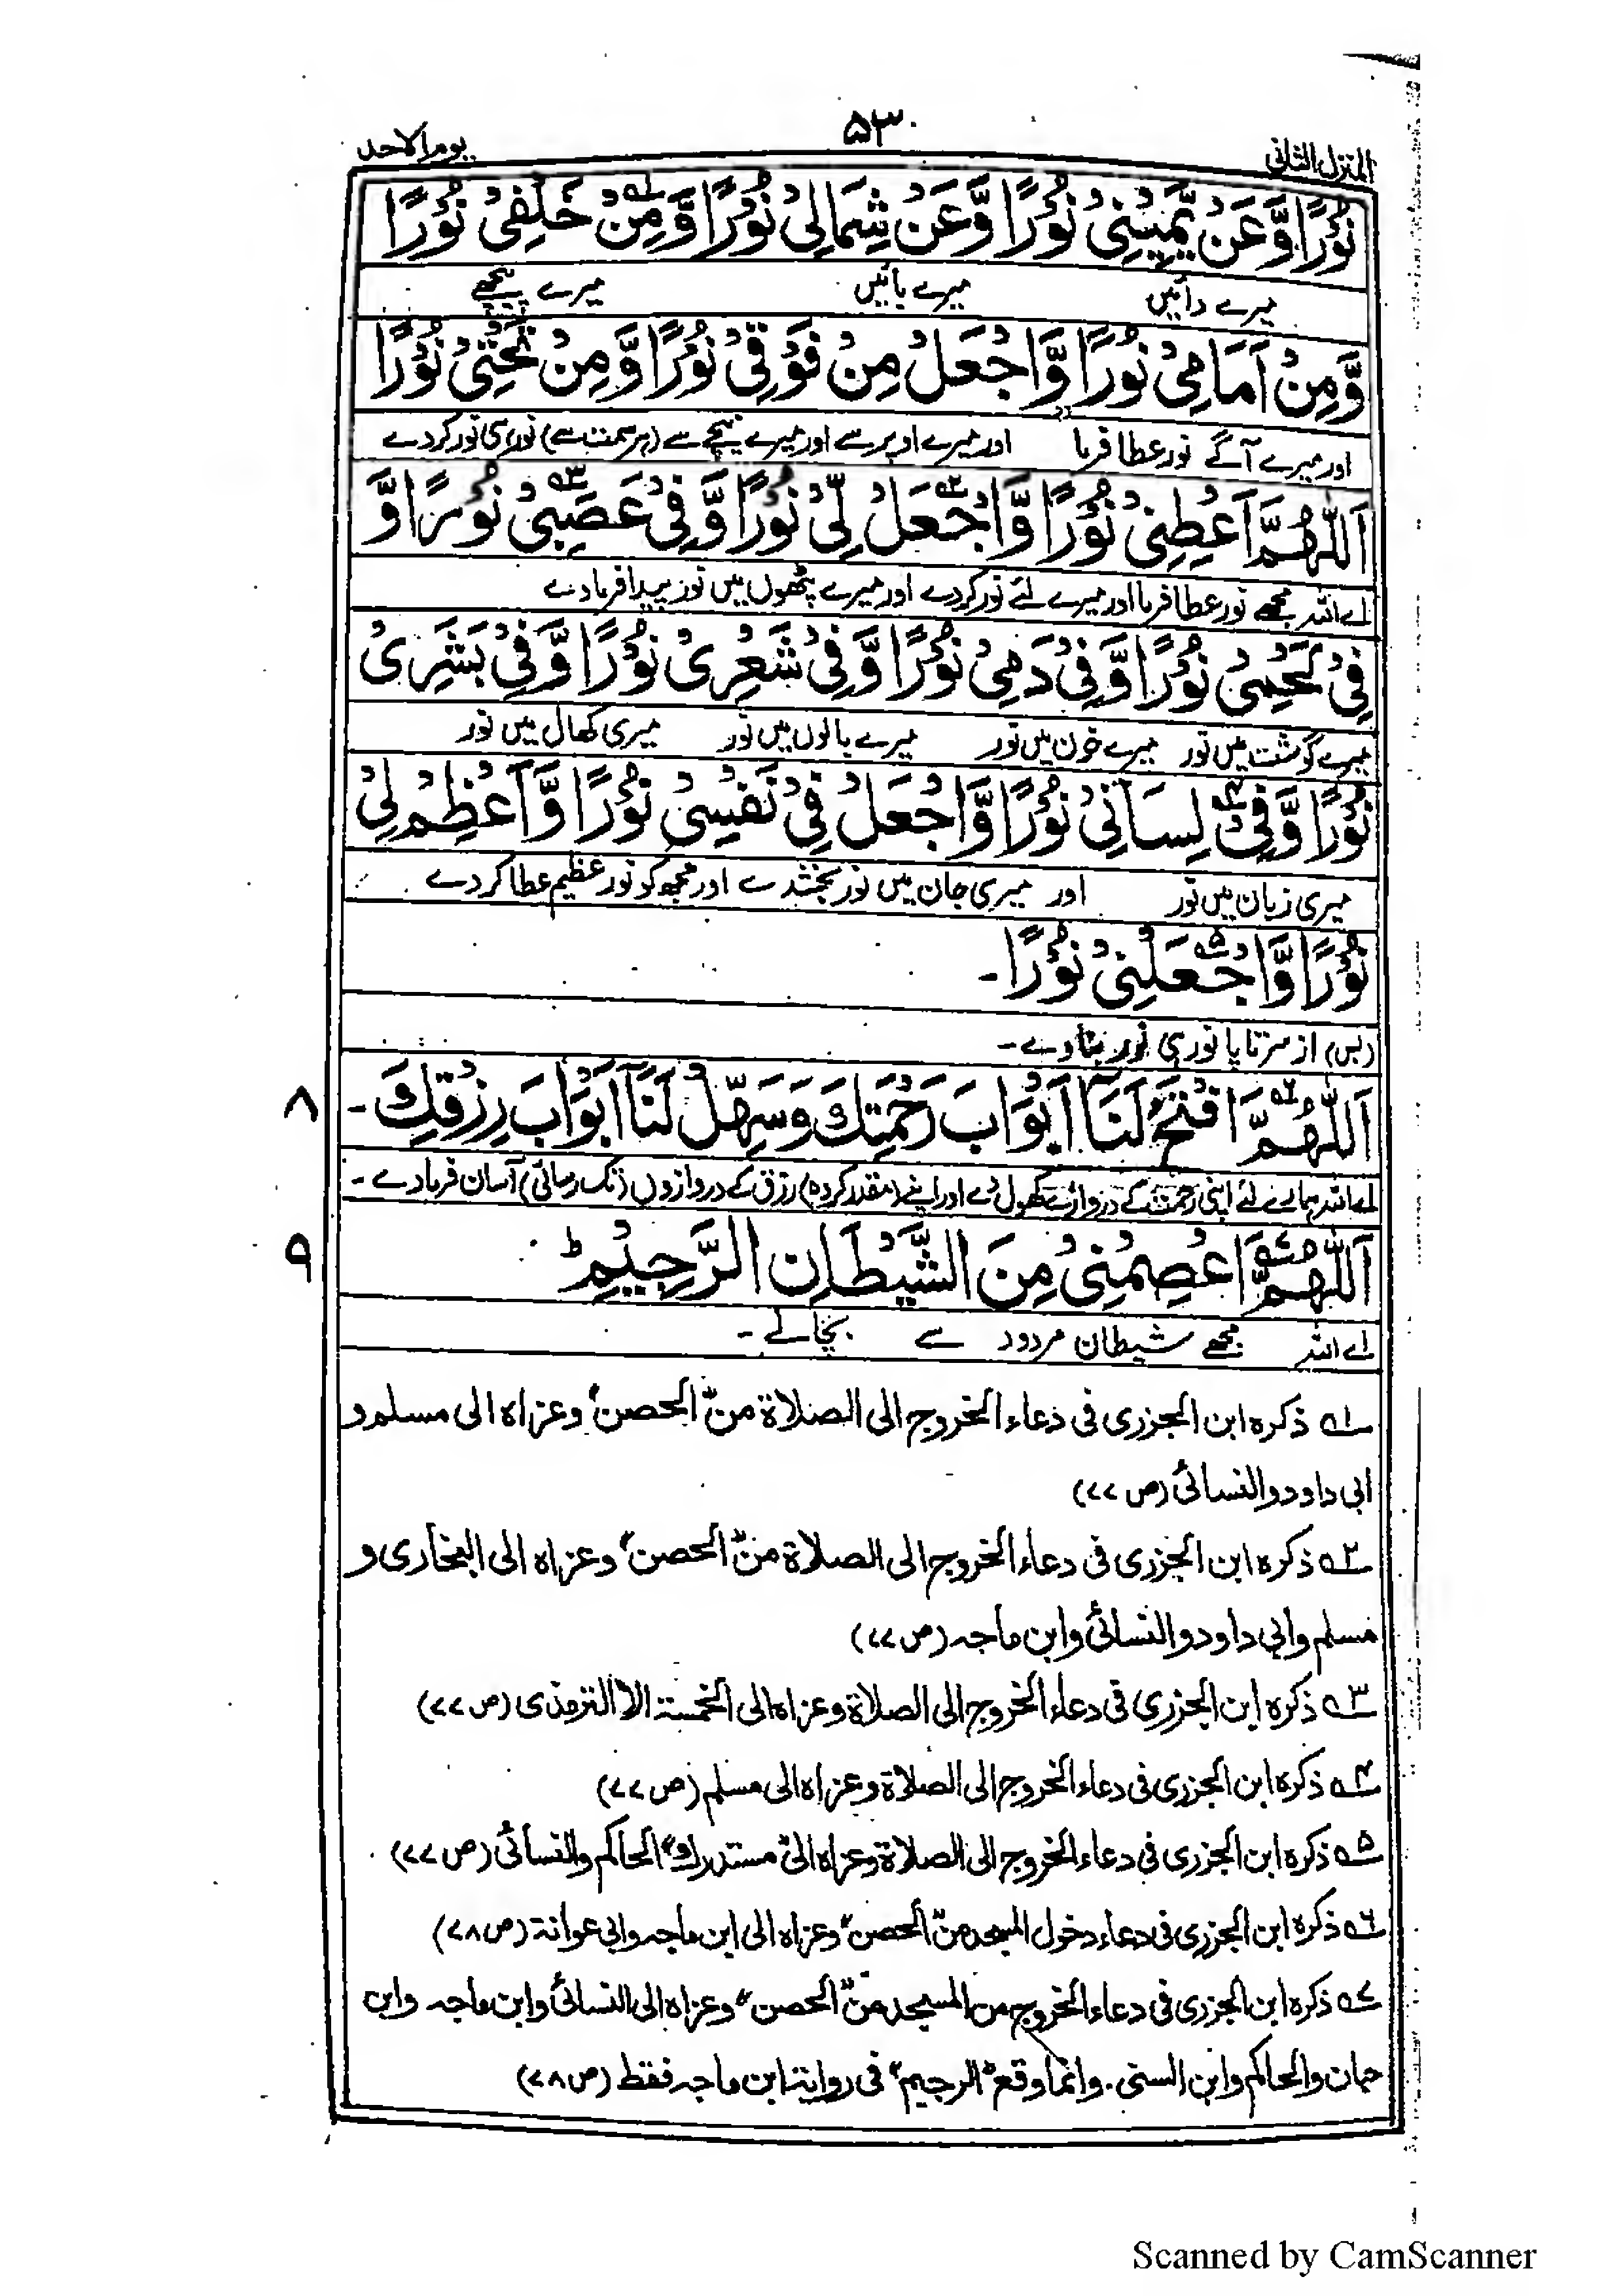 المنزل الثانی ۵۳ یوم الاحد
نُوْرًا وَّعَنْ يَّمِيْنِیْ نُوْرًا وَّعَنْ شِمَالِیْ نُوْرًا وَّمِنْ ؎۱ خَلْفِیْ نُوْرًا
میرے دائیں میرے بائیں میرے پیچھے
وَّمِنْ اَمَامِیْ نُوْرًا وَّاجْعَلْ مِنْ فَوْقِیْ نُوْرًا وَّمِنْ تَحْتِیْ نُوْرًا
اور میرے آگے نور عطا فرما اور میرے اوپر سے اور میرے نیچے سے (ہر سمت سے) نور ہی نور کردے
اَللّٰهُمَّ اَعْطِنِیْ نُوْرًا وَّاجْعَلْ ؎۲ لِّیْ نُوْرًا وَّفِیْ عَصَبِیْ ؎۳ نُوْرًا وَّ
اے اللہ مجھے نور عطا فرما اور میرے لئے نور کردے اور میرے پٹھوں میں نور پیدا فرمادے
فِیْ لَحْمِیْ نُوْرًا وَّفِیْ دَمِیْ نُوْرًا وَّفِیْ شَعْرِیْ نُوْرًا وَّفِیْ بَشَرِیْ
میرے گوشت میں نور میرے خون میں نور میرے بالوں میں نور میری کھال میں نور
نُوْرًا وَّفِیْ ؎۴ لِسَانِیْ نُوْرًا وَّاجْعَلْ فِیْ نَفْسِیْ نُوْرًا وَّاَعْظِمْ لِیْ
میری زبان میں نور اور میری جان میں نور بخشدے اور مجھ کو نور عظیم عطا کردے
نُوْرًا وَّاجْعَلْنِیْ ؎۵ نُوْرًا۔
(بس) از سرتا پا نور ہی نور بنادے۔
۸ اَللّٰهُمَّ ؎۶ افْتَحْ لَنَآ اَبْوَابَ رَحْمَتِكَ وَسَهِّلْ لَنَآ اَبْوَابَ رِزْقِكَ۔
اے اللہ ہمارے لئے اپنی رحمت کے دروازے کھول دے اور اپنے (مقدر کردہ) رزق کے دروازوں (تک رسائی) آسان فرمادے۔
۹ اَللّٰهُمَّ ؎۷ اعْصِمْنِیْ مِنَ الشَّيْطَانِ الرَّجِيْمِ ط
اے اللہ مجھے شیطان مردود سے بچالے۔
؎۱ ذکرہ ابن الجزری فی دعاء الخروج الی الصلاۃ من "الحصن" وعزاہ الی مسلم و
ابی داود والنسائی (ص ۷۷)
؎۲ ذکرہ ابن الجزری فی دعاء الخروج الی الصلاۃ من "الحصن" وعزاہ الی البخاری و
مسلم وابی داود والنسائی وابن ماجہ (ص ۷۷)
؎۳ ذکرہ ابن الجزری فی دعاء الخروج الی الصلاۃ وعزاہ الی الخمسۃ الا الترمذی (ص ۷۷)
؎۴ ذکرہ ابن الجزری فی دعاء الخروج الی الصلاۃ وعزاہ الی مسلم (ص ۷۷)
؎۵ ذکرہ ابن الجزری فی دعاء الخروج الی الصلاۃ وعزاہ الی "مستدرك" الحاکم والنسائی (ص ۷۷)
؎۶ ذکرہ ابن الجزری فی دعاء دخول المسجد من "الحصن" وعزاہ الی ابن ماجہ وابی عوانۃ (ص ۷۸)
؎۷ ذکرہ ابن الجزری فی دعاء الخروج من المسجد من "الحصن" وعزاہ الی النسائی وابن ماجہ وابن
حبان والحاکم وابن السنی. وانما وقع "الرجیم" فی روایۃ ابن ماجہ فقط (ص ۷۸)
Scanned by CamScanner